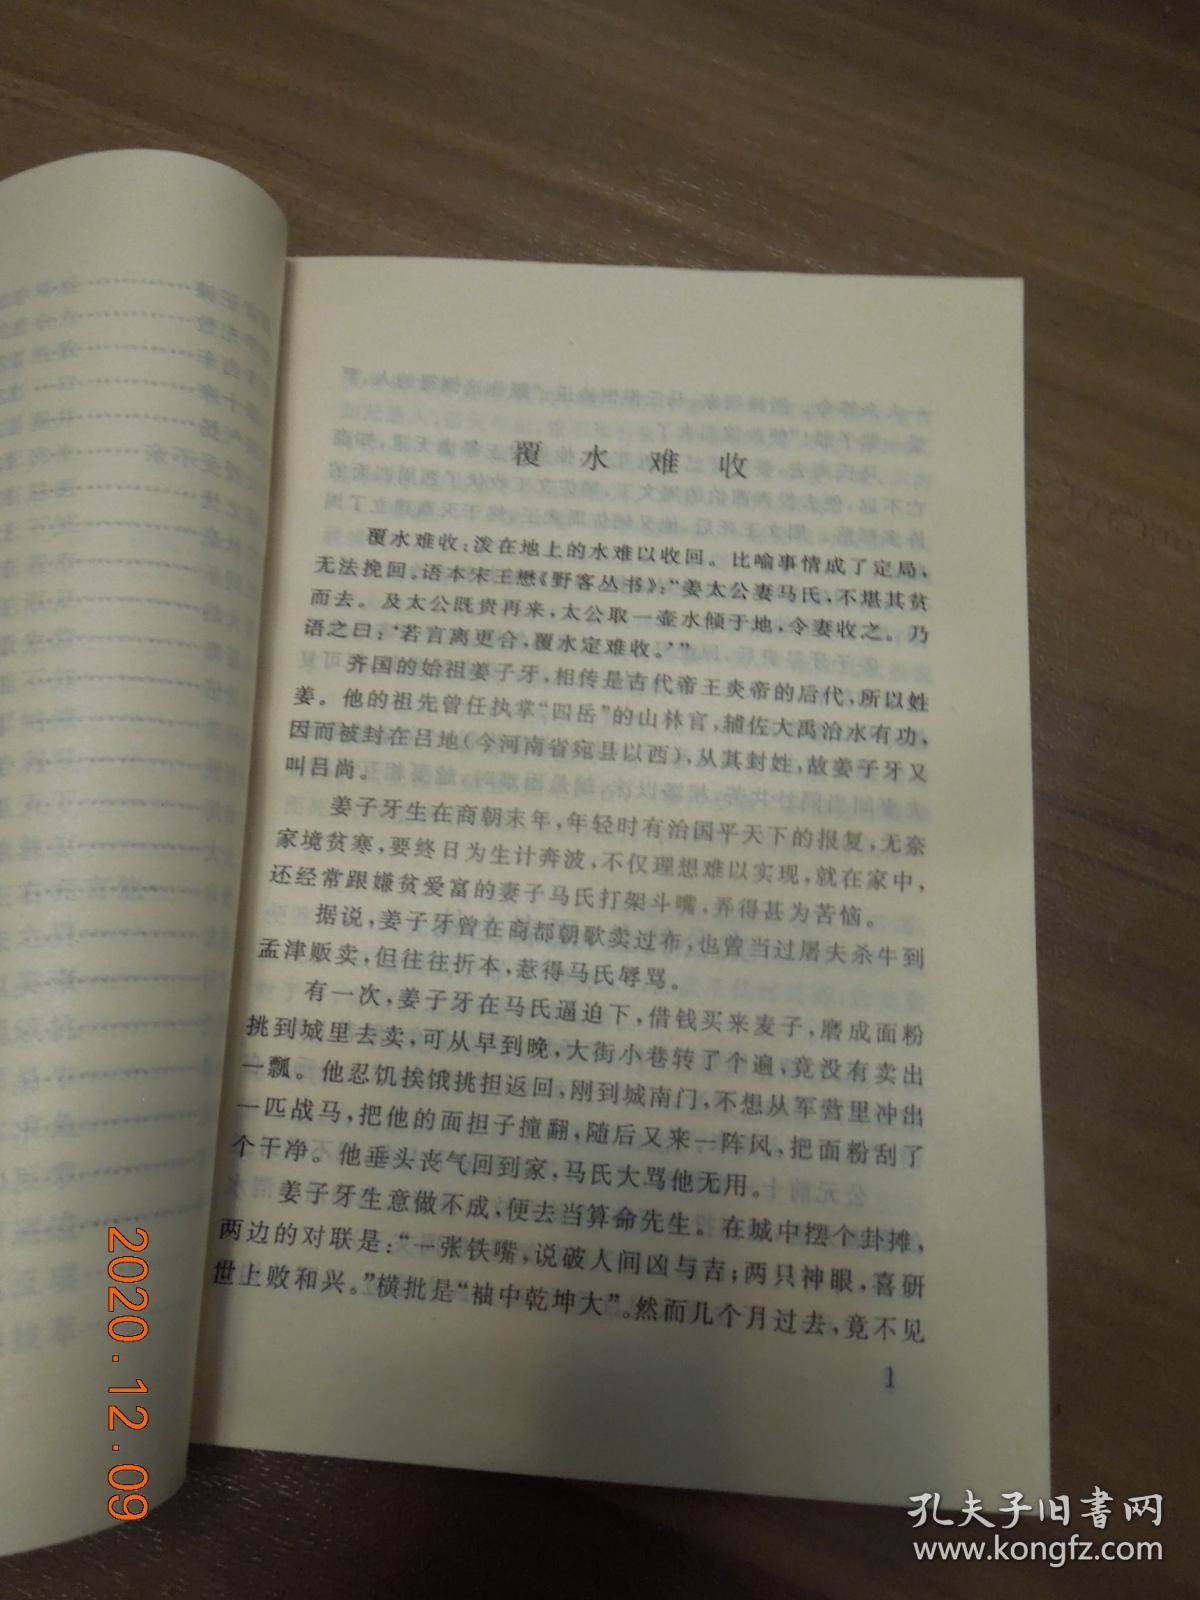 覆水难收
覆水难收：泼在地上的水难以收回。比喻事情成了定局，
无法挽回。语本宋王懋《野客丛书》：“姜太公妻马氏，不堪其贫
而去。及太公既贵再来，太公取一壶水倾于地，令妻收之。乃
语之曰：‘若言离更合，覆水定难收。’”
齐国的始祖姜子牙，相传是古代帝王炎帝的后代，所以姓
姜。他的祖先曾任执掌“四岳”的山林官，辅佐大禹治水有功，
因而被封在吕地（今河南省宛县以西），从其封姓，故姜子牙又
叫吕尚。
姜子牙生在商朝末年，年轻时有治国平天下的报复，无奈
家境贫寒，要终日为生计奔波，不仅理想难以实现，就在家中，
还经常跟嫌贫爱富的妻子马氏打架斗嘴，弄得甚为苦恼。
据说，姜子牙曾在商都朝歌卖过布，也曾当过屠夫杀牛到
孟津贩卖，但往往折本，惹得马氏辱骂。
有一次，姜子牙在马氏逼迫下，借钱买来麦子，磨成面粉
挑到城里去卖，可从早到晚，大街小巷转了个遍，竟没有卖出
一瓢。他忍饥挨饿挑担返回，刚到城南门，不想从军营里冲出
一匹战马，把他的面担子撞翻，随后又来一阵风，把面粉刮了
个干净。他垂头丧气回到家，马氏大骂他无用。
姜子牙生意做不成，便去当算命先生。在城中摆个卦摊，
两边的对联是：“一张铁嘴，说破人间凶与吉；两只神眼，喜研
世上败和兴。”横批是“袖中乾坤大”。然而几个月过去，竟不见
1
2020.12.09
孔夫子旧书网
www.kongfz.com